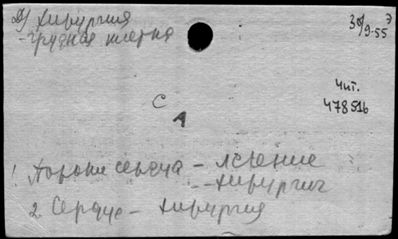 2) Хирургия
30/9-55 э
- грудная клетка
Чит.
478516
С
А
1. Пороки сердца - лечение
- хирургия
2. Сердце - хирургия